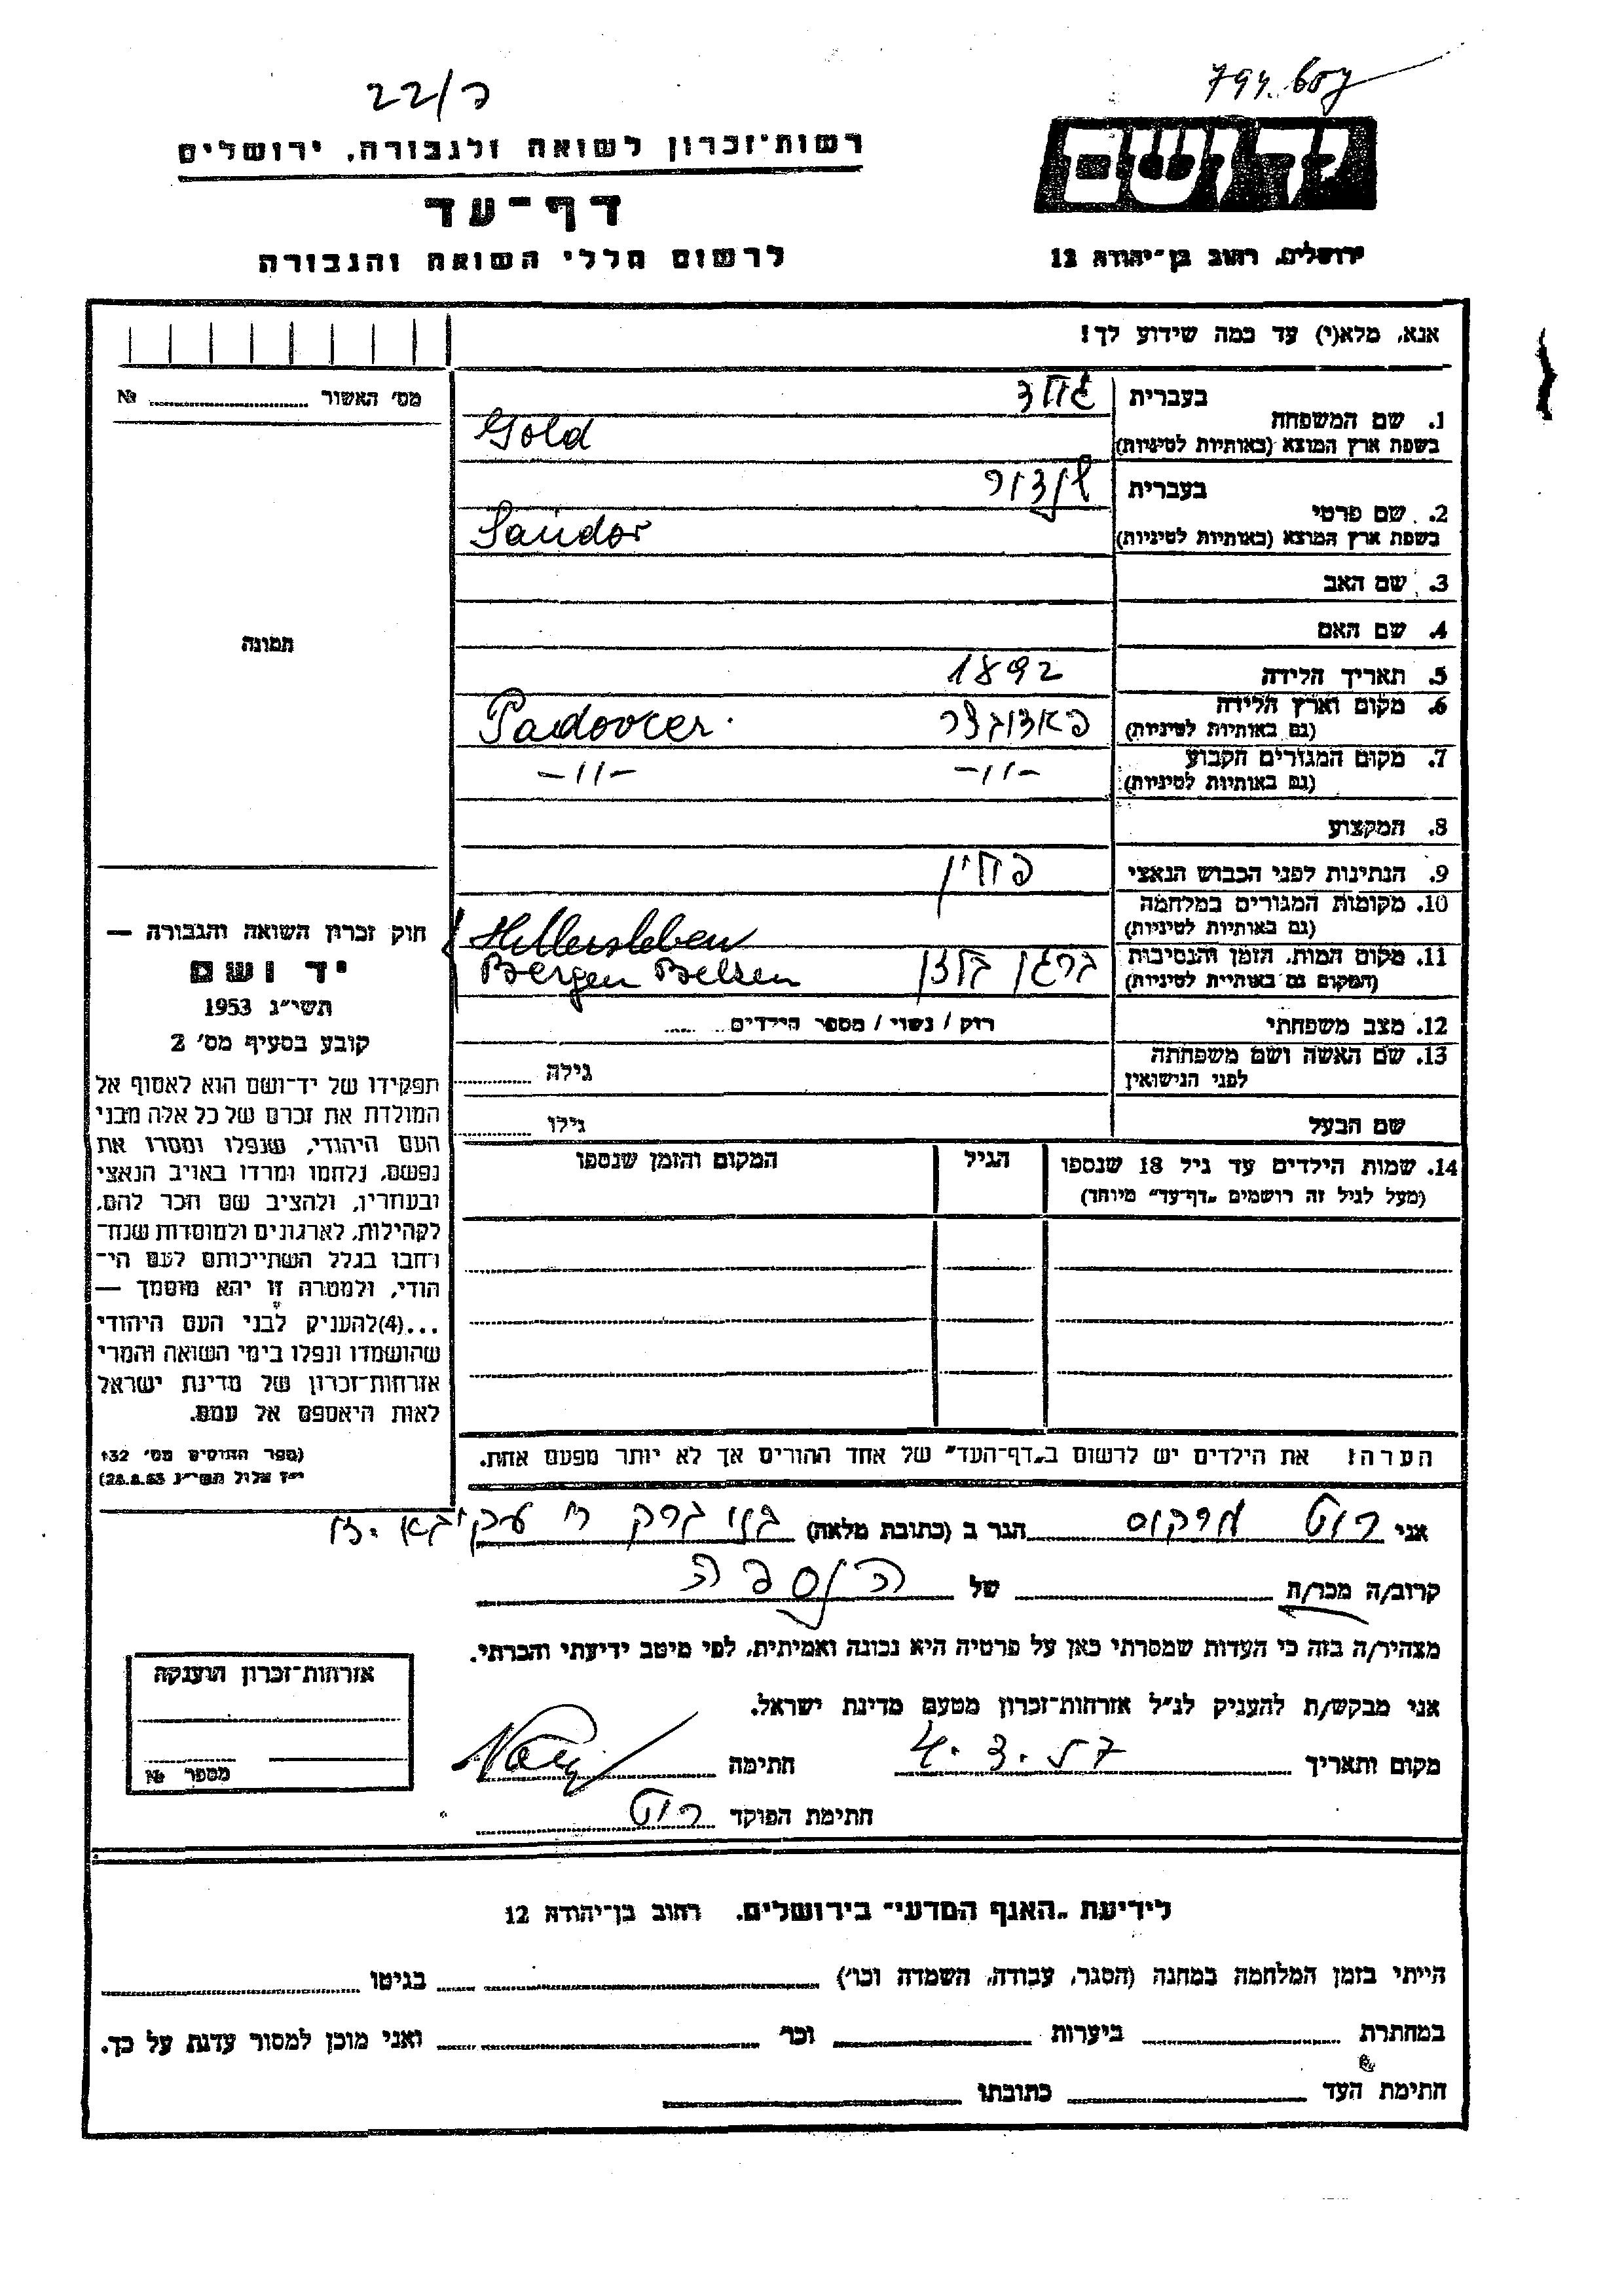 22/כ
794.607
רשות־זכרון לשואה ולגבורה, ירושלים
יד ושם
דף־עד
לרשום חללי השואה והגבורה
ירושלים, רחוב בן־יהודה 12
אנא, מלא(י) עד כמה שידוע לך!
מס׳ האשור № 
1. שם המשפחה בעברית גולד
בשפת ארץ המוצא (באותיות לטיניות) Gold
2. שם פרטי בעברית שנדור
בשפת ארץ המוצא (באותיות לטיניות) Sándor
3. שם האב
4. שם האם
תמונה
5. תאריך הלידה 1892
6. מקום וארץ הלידה (גם באותיות לטיניות) פאדובצר Padovcer.
7. מקום המגורים הקבוע (גם באותיות לטיניות) -//- -//-
8. המקצוע
9. הנתינות לפני הכבוש הנאצי
10. מקומות המגורים במלחמה (גם באותיות לטיניות)
11. מקום המות, הזמן והנסיבות (המקום גם באותיות לטיניות) ברגן בלזן Bergen Belsen
12. מצב משפחתי רווק / נשוי / מספר הילדים
13. שם האשה ושם משפחתה לפני הנישואין גילה
שם הבעל גילו
14. שמות הילדים עד גיל 18 שנספו הגיל המקום והזמן שנספו
(מעל לגיל זה רושמים „דף־עד״ מיוחד)
חוק זכרון השואה והגבורה —
יד ושם
תשי״ג 1953
קובע בסעיף מס׳ 2
תפקידו של יד־ושם הוא לאסוף אל
המולדת את זכרם של כל אלה מבני
העם היהודי, שנפלו ומסרו את
נפשם, נלחמו ומרדו באויב הנאצי
ובעוזריו, ולהציב שם וזכר להם,
לקהילות, לארגונים ולמוסדות שנח־
רבו בגלל השתייכותם לעם הי־
הודי, ולמטרה זו יהא מוסמך —
...(4)להעניק לבני העם היהודי
שהושמדו ונפלו בימי השואה והמרי
אזרחות־זכרון של מדינת ישראל
לאות היאספם אל עמם.
(ספר החוקים מס׳ 132
י״ז אלול תשי״ג 28.8.53)
הערה: את הילדים יש לרשום ב„דף־העד״ של אחד ההורים אך לא יותר מפעם אחת.
אני רוט מרקוס הגר ב (כתובת מלאה) בני ברק ר׳ עקיבא
קרוב/ה מכר/ה של הנספה
מצהיר/ה בזה כי העדות שמסרתי כאן על פרטיה היא נכונה ואמיתית, לפי מיטב ידיעתי והכרתי.
אני מבקש/ת להעניק לנ״ל אזרחות־זכרון מטעם מדינת ישראל.
מקום ותאריך 4.3.57 חתימה
חתימת הפוקד רוט
אזרחות־זכרון הוענקה
מספר №
לידיעת „האגף המדעי״ בירושלים. רחוב בן־יהודה 12
הייתי בזמן המלחמה במחנה (הסגר, עבודה, השמדה וכו׳) בגיטו
במחתרת ביערות וכו׳ ואני מוכן למסור עדות על כך.
חתימת העד כתובתו